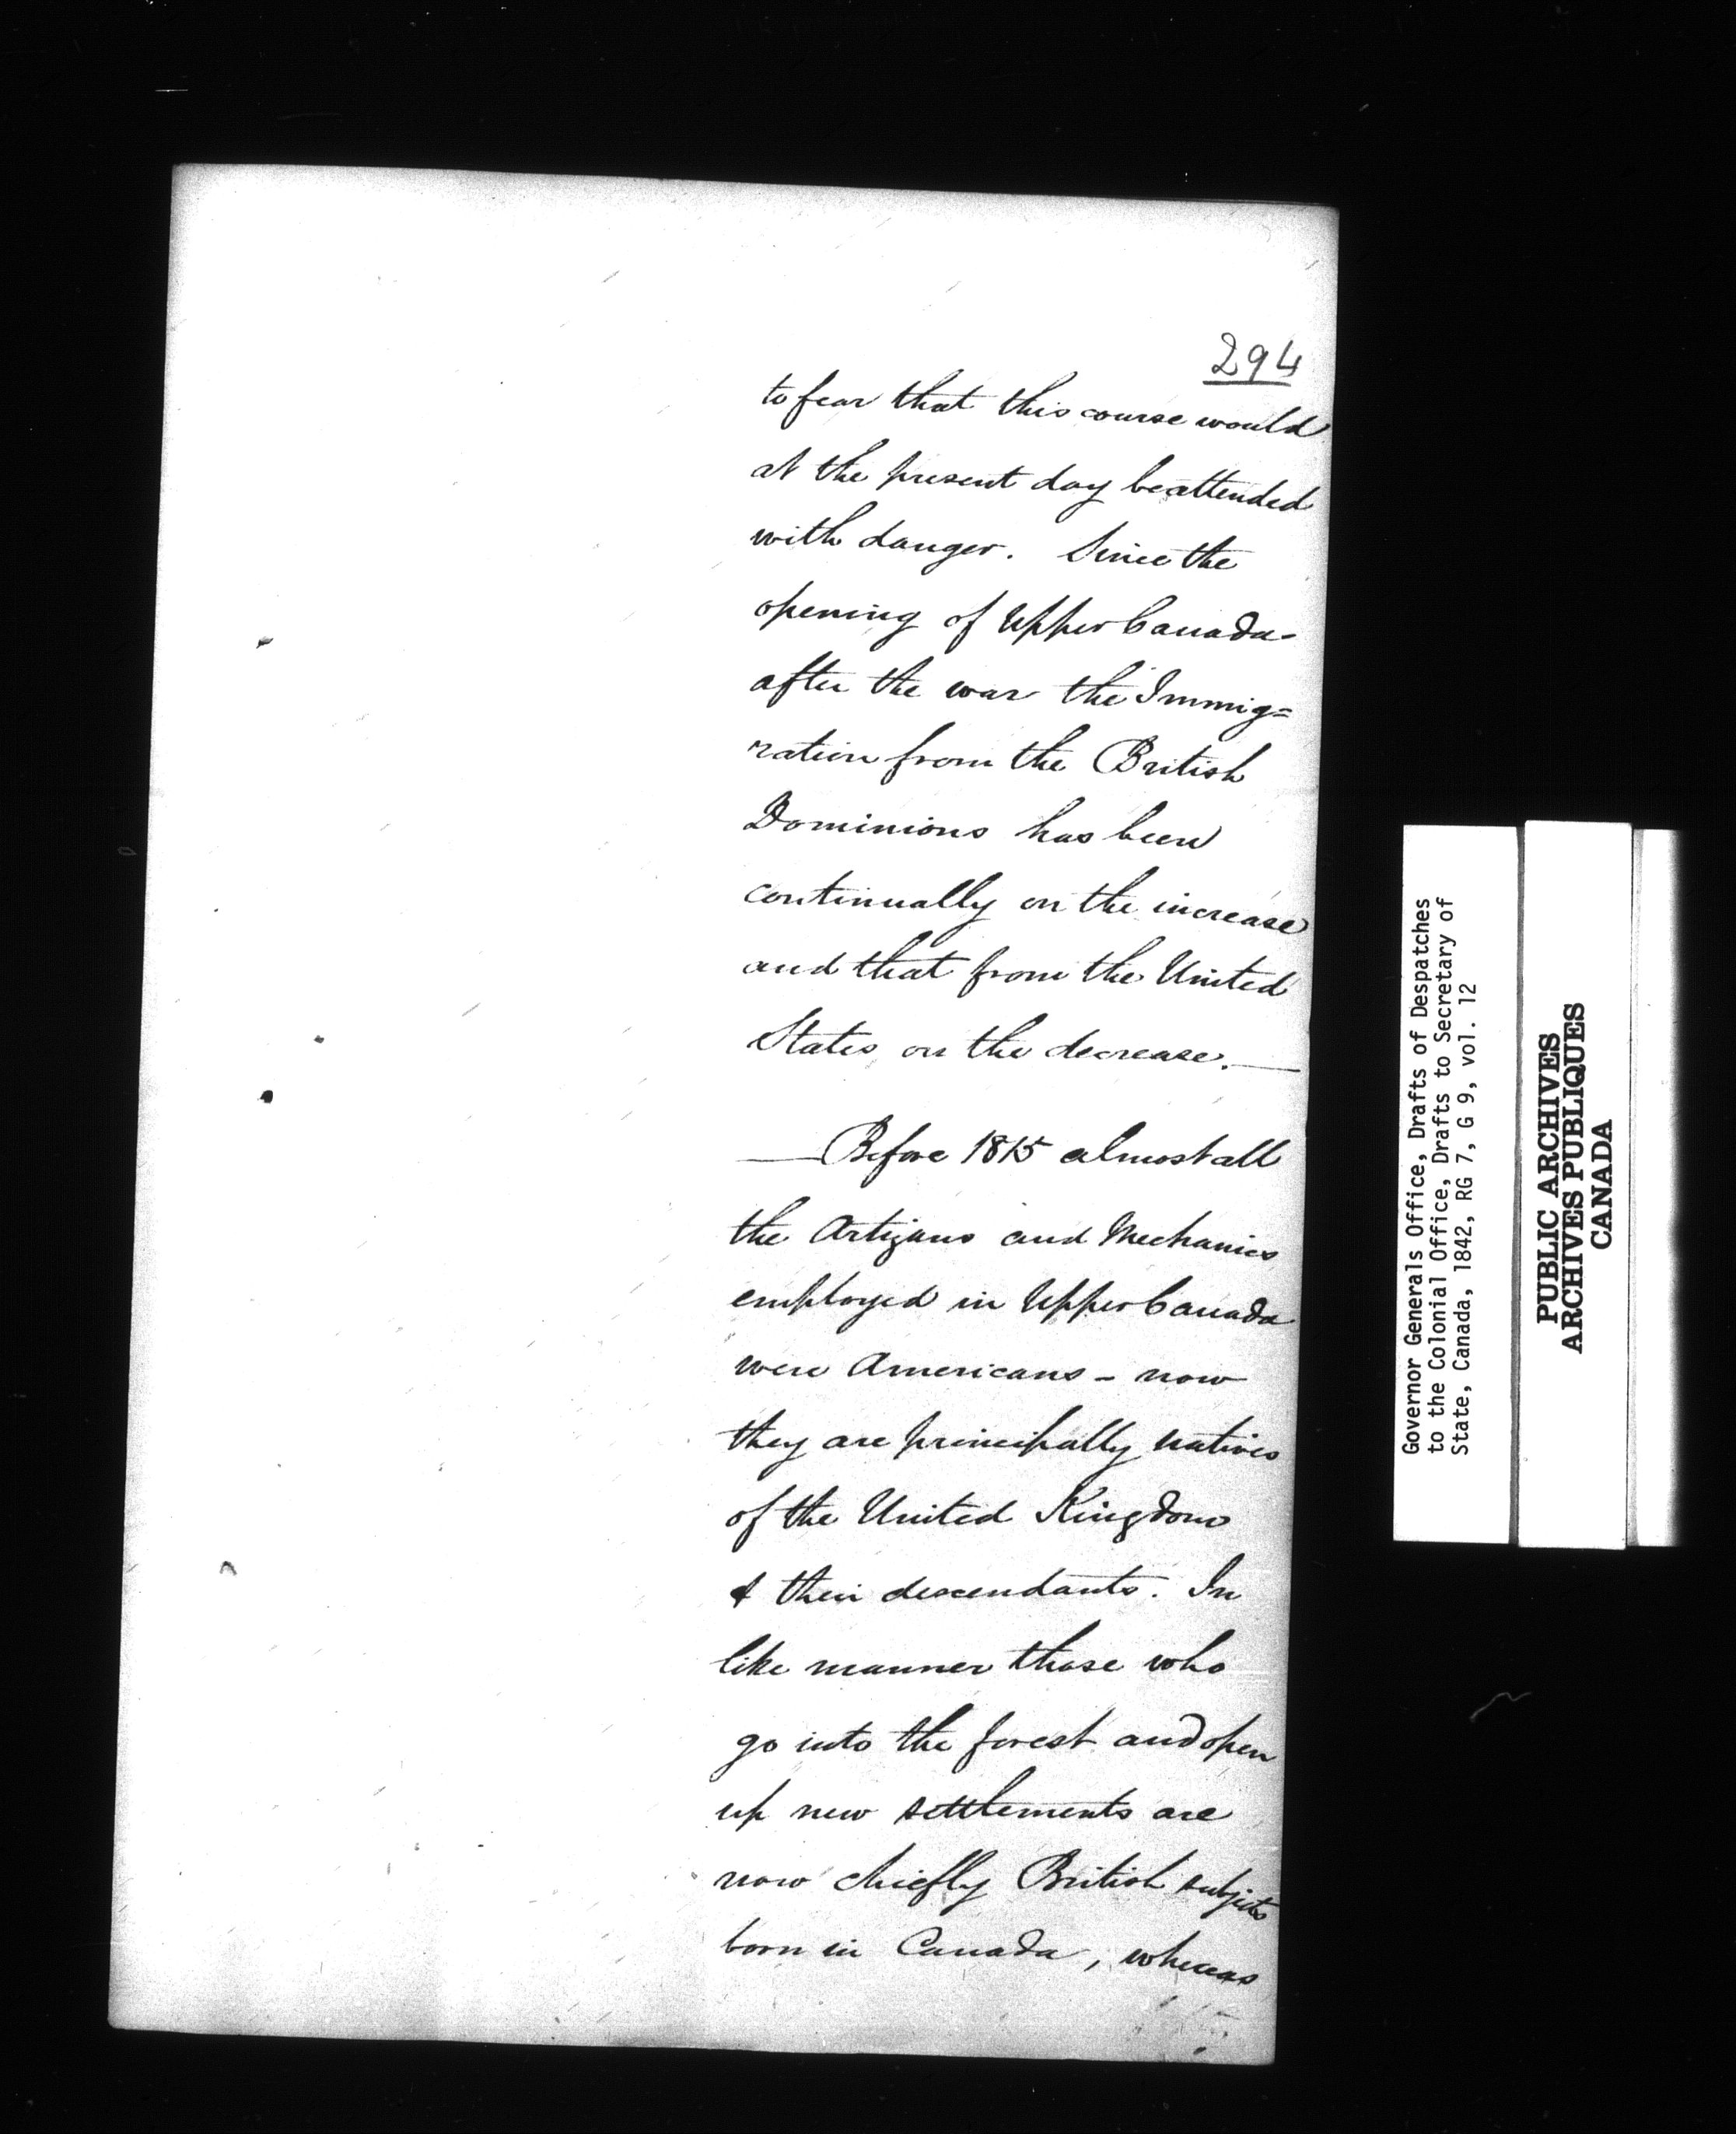 294
to fear that this course would
at the present day be attended
with danger. Since the
opening of Upper Canada -
after the war the Immig=
ration from the British
Dominions has been
continually on the increase
and that from the United
States on the decrease. —
— Before 1815 almost all
the Artizans and Mechanics
employed in Upper Canada
were Americans - now
they are principally natives
of the United Kingdom
& their descendants. In
like manner those who
go into the forest and open
up new settlements are
now chiefly British subjects
born in Canada, whereas
Governor Generals Office, Drafts of Despatches
to the Colonial Office, Drafts to Secretary of
State, Canada, 1842, RG 7, G 9, vol. 12
PUBLIC ARCHIVES
ARCHIVES PUBLIQUES
CANADA